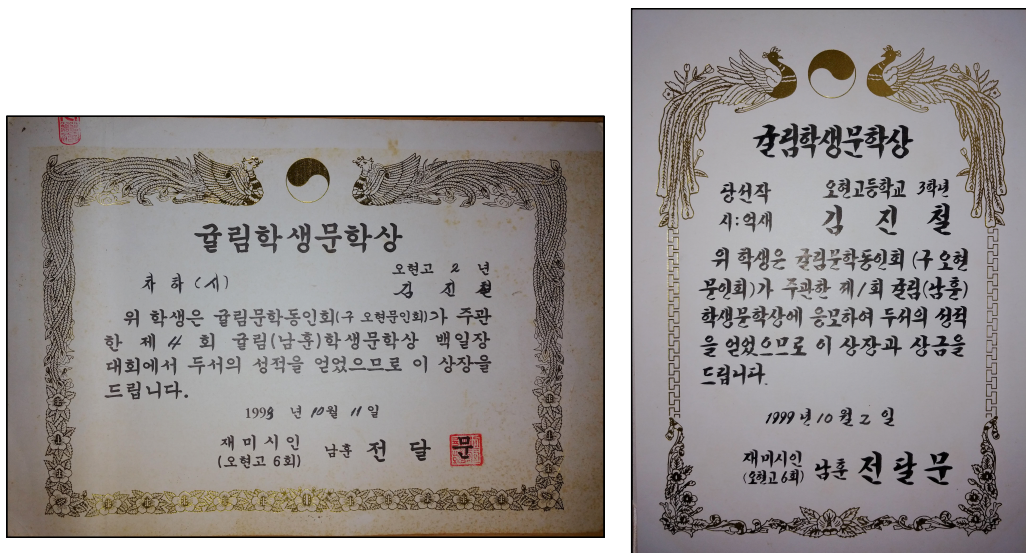 귤림학생문학상
차하(시)
오현고 2 년
김 진 철
위 학생은 귤림문학동인회(구 오현문인회)가 주관
한 제 4 회 귤림(남훈)학생문학상 백일장
대회에서 두서의 성적을 얻었으므로 이 상장을
드립니다.
년 10월 11일
재미시인
(오현고 6회)
남훈 전 달 문
귤림학생문학상
당선작
오현고등학교 3학년
시:억새
김 진 철
위 학생은 귤림문학동인회(구 오현
문인회)가 주관한 제1회 귤림(남훈)
학생문학상에 응모하여 두서의 성적
을 얻었으므로 이 상장과 상금을
드립니다.
1999년 10월 2일
재미시인
(오현고 6회)
남훈 전달문